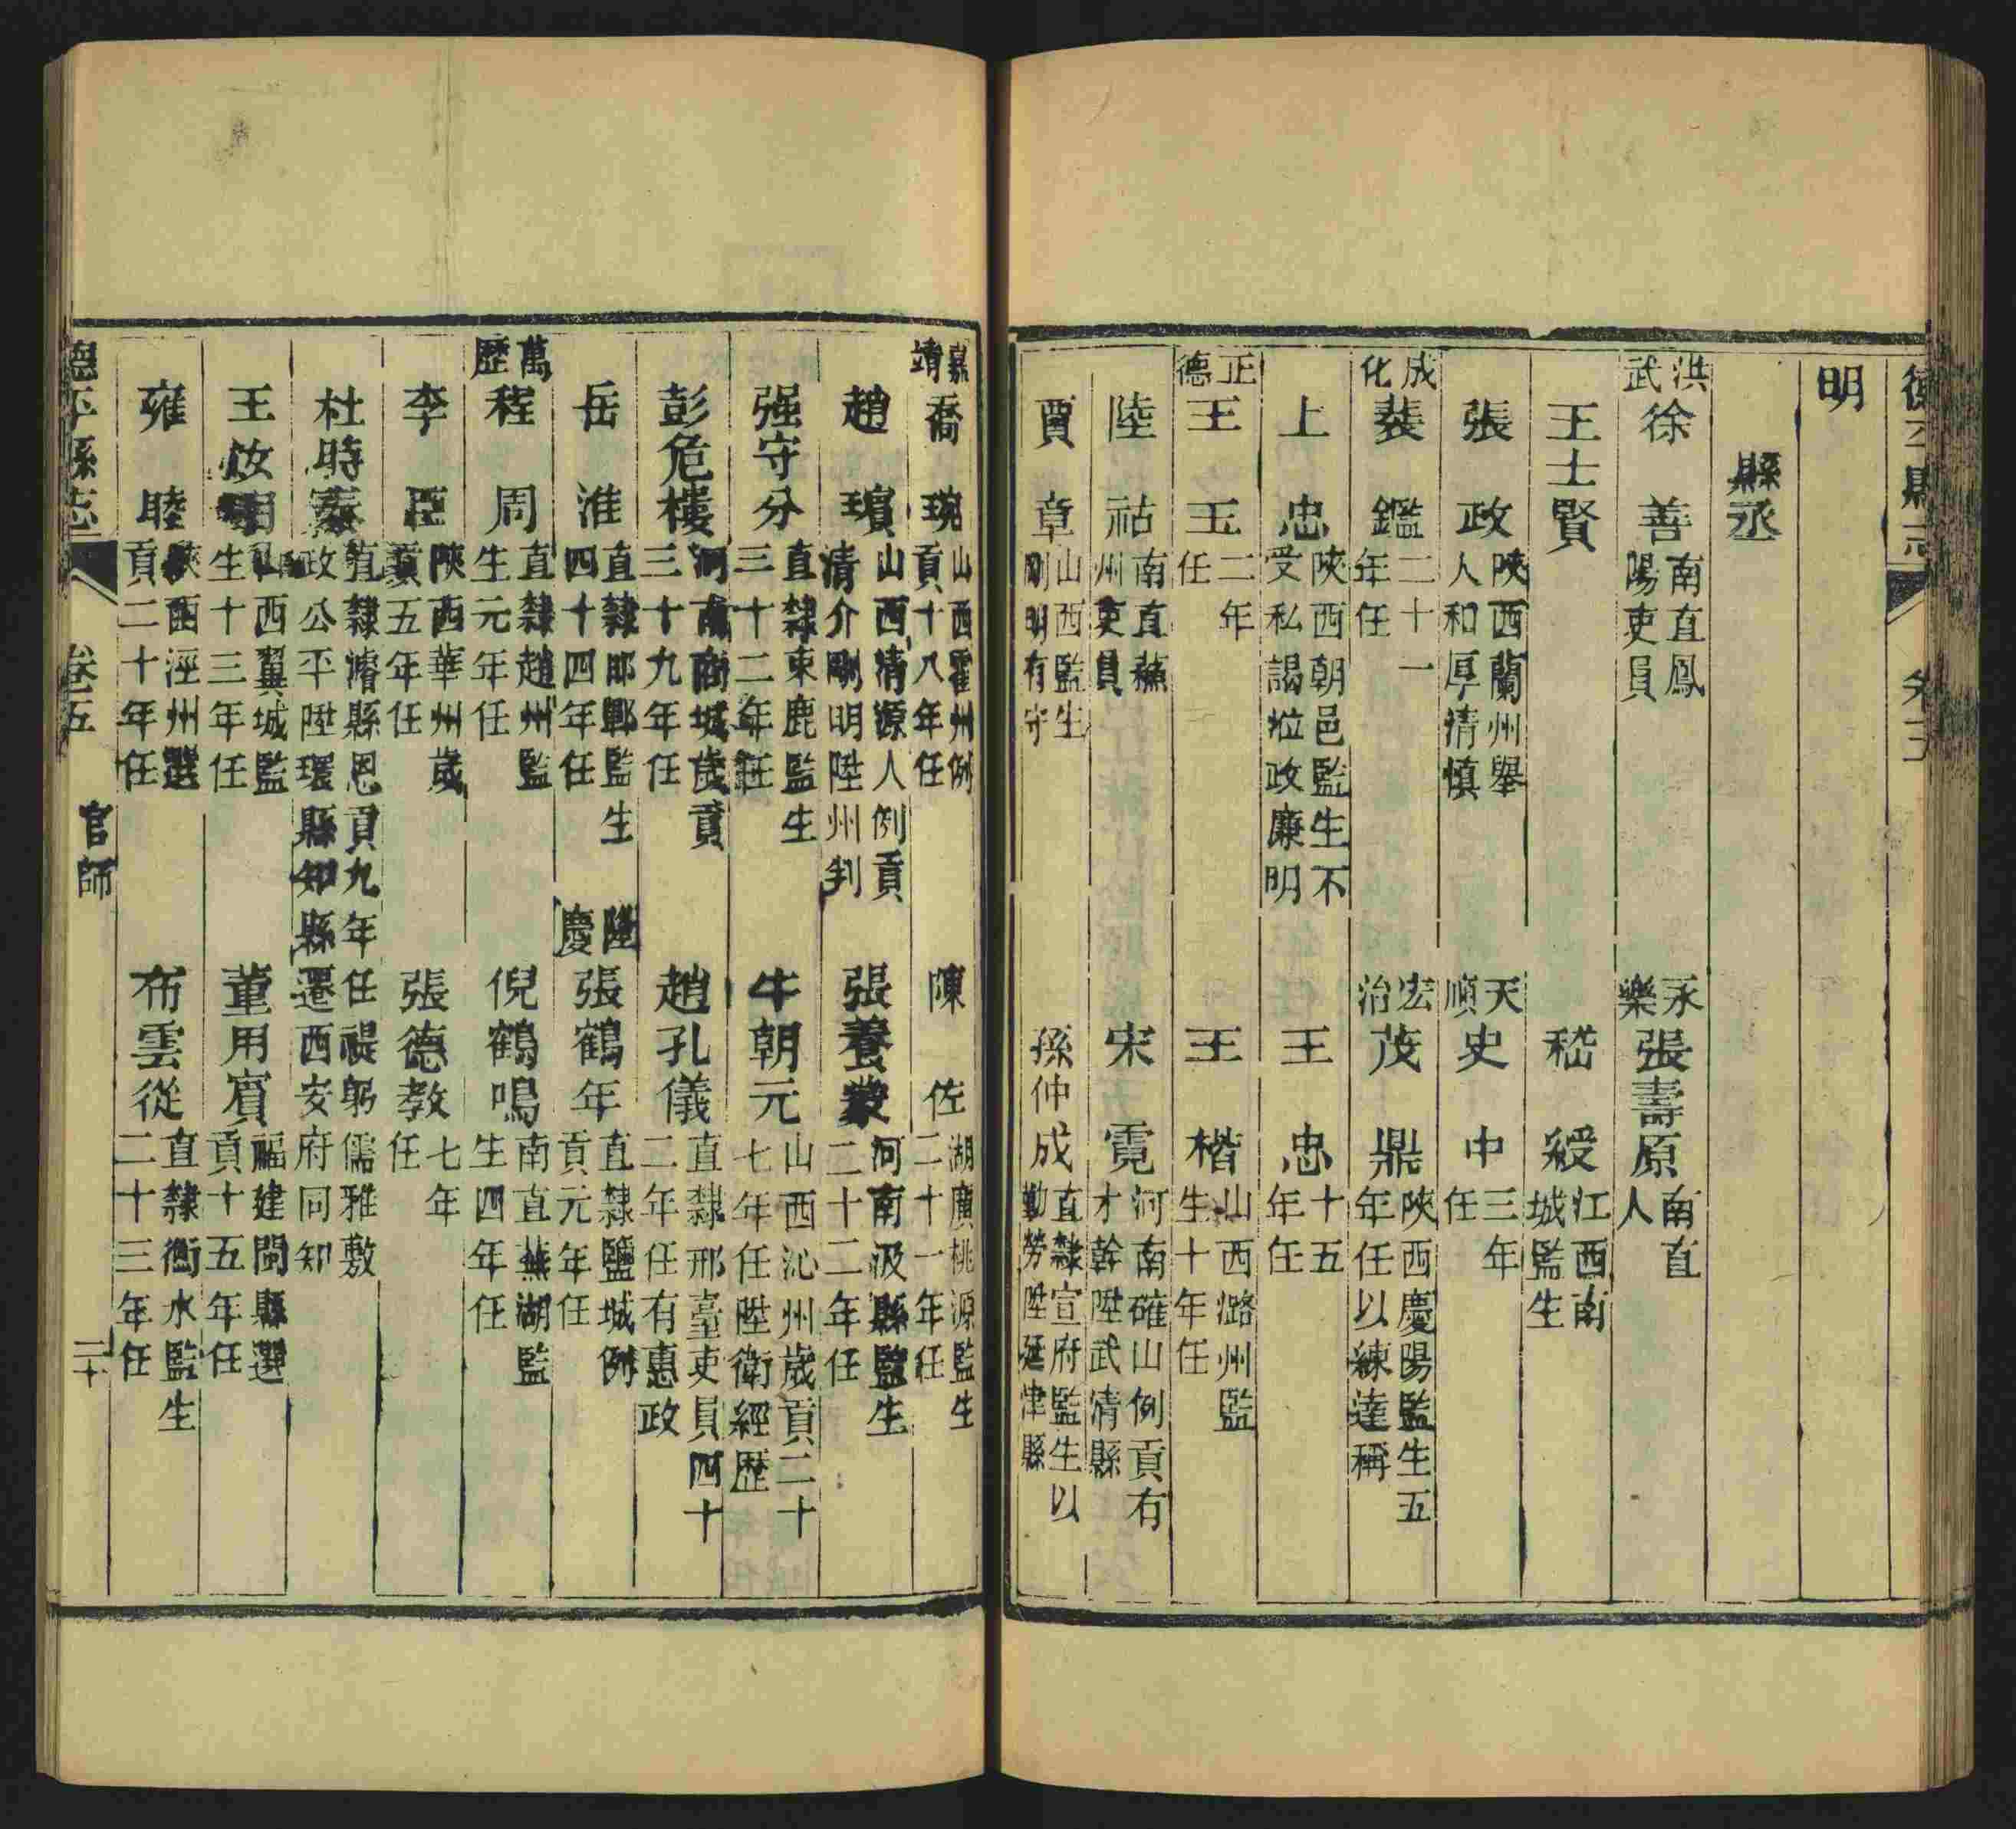 德平縣志 卷五
明
縣丞
洪武 徐善 南直鳳陽吏員
永樂 張壽原 南直人
王士賢
嵇綬 江西南城監生
張政 陝西蘭州舉人和厚清慎
天順 史中 三年任
成化 裴鑑 二十一年任
宏治 茂鼎 陝西慶陽監生五年任以練達稱
上忠 陝西朝邑監生不受私謁涖政廉明
王忠 十五年任
正德 王玉 二年任
王楷 山西潞州監生十年任
陸祜 南直蘇州吏員
宋霓 河南確山例貢有才幹陞武清縣
賈章 山西監生剛明有守
孫仲成 直隸宣府監生以勤勞陞延津縣
嘉靖 喬琬 山西霍州例貢十八年任
陳佐 湖廣桃源監生二十一年任
趙璸 山西清源人例貢清介剛明陞州判
張養蒙 河南汲縣監生二十二年任
强守分 直隸束鹿監生三十二年任
牛朝元 山西沁州歲貢二十七年任陞衛經歷
彭危樓 河南商城歲貢三十九年任
趙孔儀 直隸邢臺吏員四十二年任有惠政
岳淮 直隸邯鄲監生四十四年任
隆慶 張鶴年 直隸鹽城例貢元年任
萬歷 程周 直隸趙州監生元年任
倪鶴鳴 南直蕪湖監生四年任
李臣 陝西華州歲貢五年任
張德教 七年任
杜時泰 直隸濬縣恩貢九年任禔躬儒雅敷政公平陞環縣知縣遷西安府同知
王汝明 山西翼城監生十三年任
董用賓 福建閩縣選貢十五年任
雍睦 陝西涇州選貢二十年任
布雲從 直隸衡水監生二十三年任
德平縣志 卷五 官師 二十